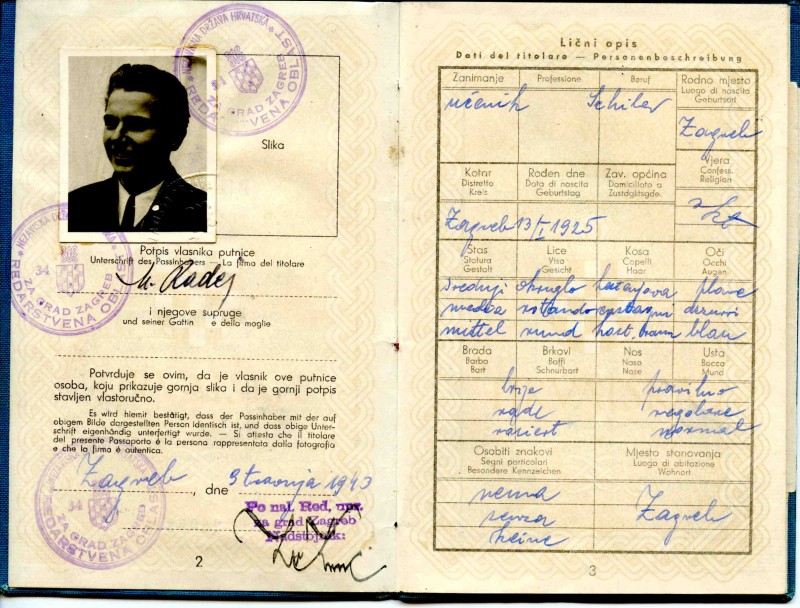 NEZAVISNA DRŽAVA HRVATSKA
REDARSTVENA OBLAST
ZA GRAD ZAGREB
34
Slika
NEZAVISNA DRŽAVA
REDARSTVENA OBLAST
ZA GRAD ZAGREB
34
Potpis vlasnika putnice
Unterschrift des Passinhabers — La firma del titolare
i njegove supruge
und seiner Gattin e della moglie
Potvrđuje se ovim, da je vlasnik ove putnice
osoba, koju prikazuje gornja slika i da je gornji potpis
stavljen vlastoručno.
Es wird hiemit bestätigt, dass der Passinhaber mit der auf
obigem Bilde dargestellten Person identisch ist, und dass obige Unter-
schrift eigenhändig unterfertigt wurde. — Si attesta che il titolare
del presente Passaporto è la persona rappresentata dalla fotografia
e che la firma è autentica.
Zagreb, dne 9 travnja 1943
Po nal. Red. upr.
za grad Zagreb
Nadstojnik:
REDARSTVENA OBLAST
ZA GRAD ZAGREB
2
Lični opis
Dati del titolare — Personenbeschreibung
Zanimanje Professione Beruf
Rodno mjesto
Luogo di nascita
Geburtsort
učenik Schüler
Zagreb
Vjera
Confess.
Religion
Kotar
Distretto
Kreis
Rođen dne
Data di nascita
Geburtstag
Zav. općina
Domicilato a
Zustdgktsgde.
Zagreb 13/I 1925
Stas
Statura
Gestalt
Lice
Viso
Gesicht
Kosa
Capelli
Haar
Oči
Occhi
Augen
srednji okruglo kestenjava plave
media rotondo castagni azzurri
mittel rund kast. braun blau
Brada
Barba
Bart
Brkovi
Baffi
Schnurbart
Nos
Naso
Nase
Usta
Bocca
Mund
brije pravilno
rade regolare
rasiert normal
Osobiti znakovi
Segni particolari
Besondere Kennzeichen
Mjesto stanovanja
Luogo di abitazione
Wohnort
nema
senza
keine
Zagreb
3